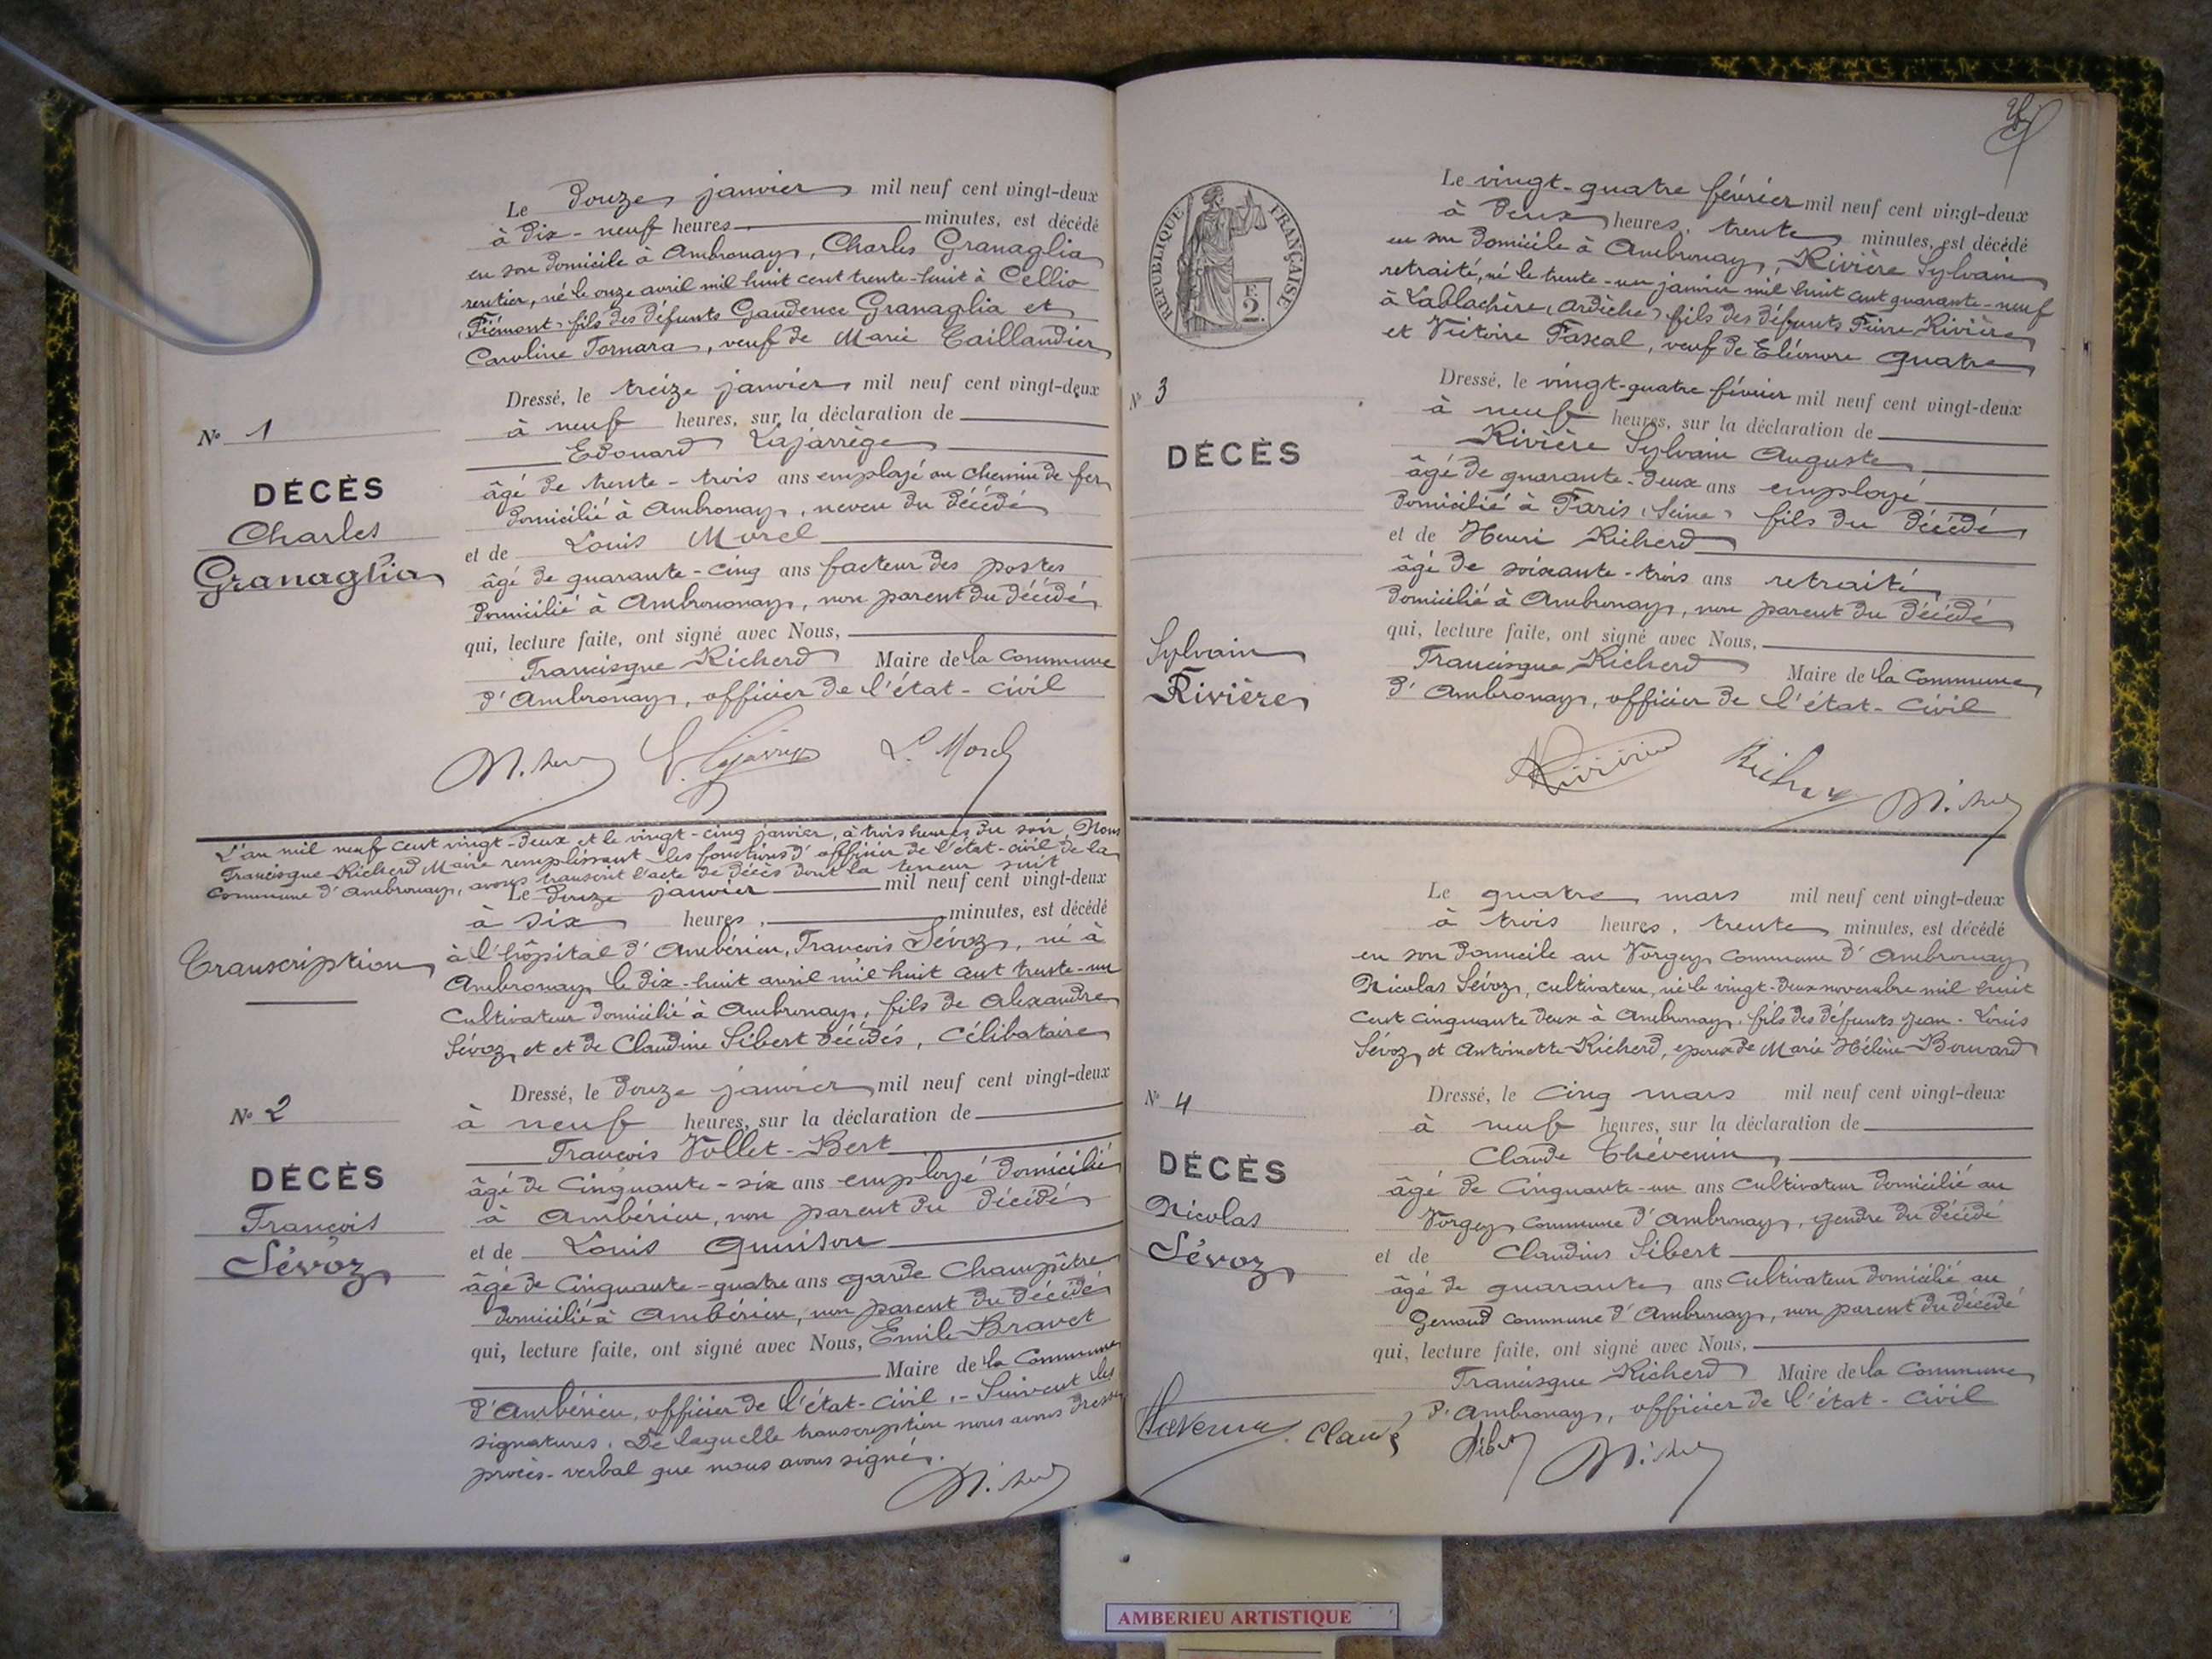 Le Douze janvier mil neuf cent vingt-deux
à Dix-neuf heures minutes, est décédé
en son domicile à Ambronay, Charles Granaglia
rentier, né le onze avril mil huit cent trente-huit à Cellio
(Piémont) fils des défunts Gaudence Granaglia et
Caroline Tornara, veuf de Marie Taillandier
Dressé, le treize janvier mil neuf cent vingt-deux
Nº 1
à neuf heures, sur la déclaration de
Edouard Lajarrège
DÉCÈS
âgé de trente-trois ans employé au chemin de fer
Charles
domicilié à Ambronay, neveu du décédé
Granaglia
et de Louis Morel
âgé de quarante-cinq ans facteur des postes
domicilié à Ambrononay, non parent du décédé
qui, lecture faite, ont signé avec Nous,
Francisque Richerd Maire de la Commune
d'Ambronay, officier de l'état-civil
L. Morel
L'an mil neuf cent vingt-deux et le vingt-cinq janvier, à trois heures du soir, Nous
Francisque Richerd Maire remplissant les fonctions d'officier de l'état-civil de la
Commune d'Ambronay, avons transcrit l'acte de décès dont la teneur suit
Le Douze janvier mil neuf cent vingt-deux
à six heures, minutes, est décédé
Transcription
à l'hôpital d'Ambérieu, François Sévoz, né à
Ambronay le dix-huit avril mil huit cent trente-un
Cultivateur domicilié à Ambronay, fils de Alexandre
Sévoz et et de Claudine Sibert décédés, Célibataire
Dressé, le Douze janvier mil neuf cent vingt-deux
Nº 2
à neuf heures, sur la déclaration de
François Vollet-Bert
DÉCÈS
âgé de Cinquante-six ans employé domicilié
François
à Ambérieu, non parent du décédé
Sévoz
et de Louis Quinson
âgé de Cinquante-quatre ans garde Champêtre
domicilié à Ambérieu, non parent du décédé
qui, lecture faite, ont signé avec Nous, Emile Bravet
Maire de la Commune
d'Ambérieu, officier de l'état-civil. - Suivent les
signatures. De laquelle transcription nous avons dressé
procès-verbal que nous avons signé.
REPUBLIQUE FRANÇAISE
F.
2.
Le vingt-quatre février mil neuf cent vingt-deux
à Deux heures, trente minutes, est décédé
en son domicile à Ambronay, Rivière Sylvain
retraité, né le trente-un janvier mil huit cent quarante-neuf
à Lablachère (Ardèche) fils des défunts Pierre Rivière
et Victoire Pascal, veuf de Eléonore Quatre
Dressé, le vingt-quatre février mil neuf cent vingt-deux
Nº 3
à neuf heures, sur la déclaration de
Rivière Sylvain Auguste
DÉCÈS
âgé de quarante-deux ans employé
domicilié à Paris (Seine) fils du décédé
et de Henri Richerd
âgé de soixante-trois ans retraité
domicilié à Ambronay, non parent du décédé
qui, lecture faite, ont signé avec Nous,
Sylvain
Francisque Richerd Maire de la Commune
Rivière
d'Ambronay, officier de l'état-civil
Rivière
Le quatre mars mil neuf cent vingt-deux
à trois heures, trente minutes, est décédé
en son domicile au Vorgey Commune d'Ambronay
Nicolas Sévoz, cultivateur, né le vingt-deux novembre mil huit
cent cinquante deux à Ambronay, fils des défunts Jean-Louis
Sévoz et Antoinette Richerd, époux de Marie Hélène Bouvard
Dressé, le Cinq mars mil neuf cent vingt-deux
Nº 4
à neuf heures, sur la déclaration de
Claude Thévenin
DÉCÈS
âgé de Cinquante-un ans Cultivateur domicilié au
Nicolas
Vorgey Commune d'Ambronay, gendre du décédé
Sévoz
et de Claudius Sibert
âgé de quarante ans Cultivateur domicilié au
Genoud Commune d'Ambronay, non parent du décédé
qui, lecture faite, ont signé avec Nous,
Francisque Richerd Maire de la Commune
d'Ambronay, officier de l'état-civil
AMBERIEU ARTISTIQUE